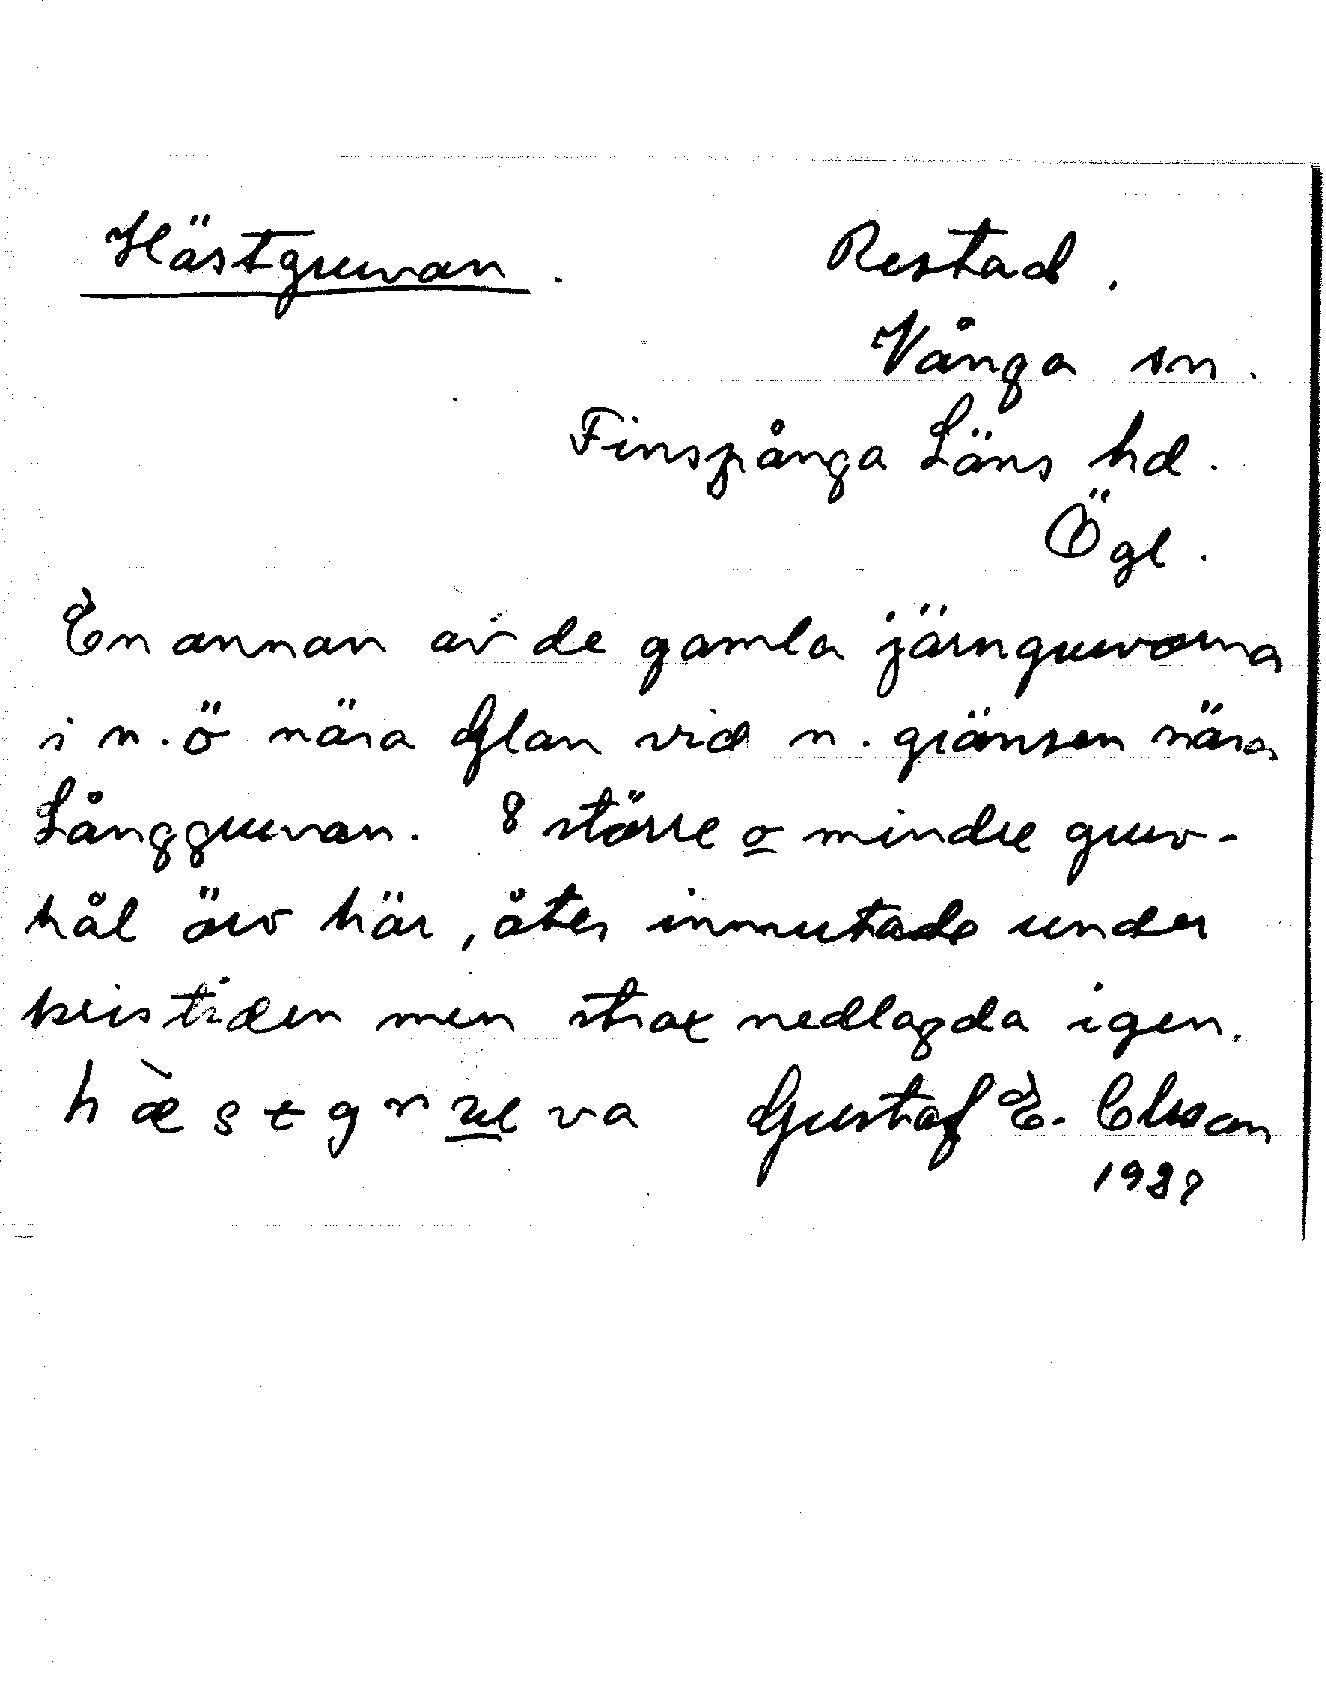 Hästgruvan. Restad.
Vånga sn.
Finspånga Läns hd.
Ögl.
En annan av de gamla järngruvorna
i n.ö nära Glan vid n. gränsen nära
Långgruvan. 8 större o mindre gruv-
hål äro här, åter inmutade under
kristiden men strax nedlagda igen.
hæstgruva Gustaf E. Olsson